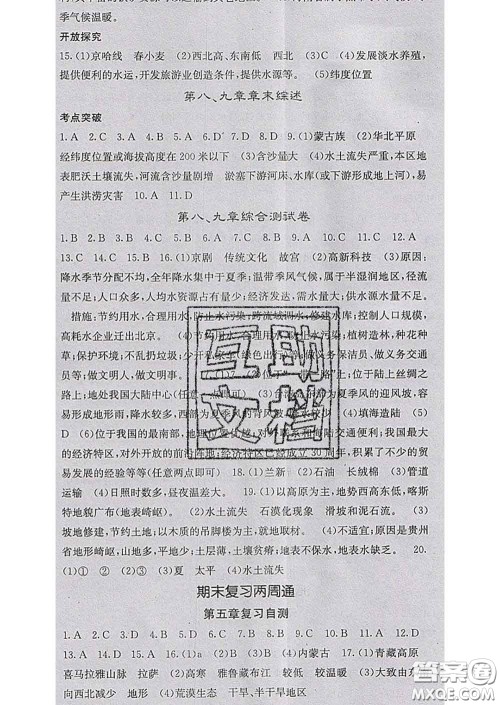 季气候温暖。
开放探究
15.(1)京哈线 春小麦 (2)西北高、东南低 西北 (3)C (4)发展淡水养殖,
提供便利的水运,开发旅游业创造条件,提供水源等。 (5)纬度位置
第八、九章章末综述
考点突破
1.A 2.C 3.A 4.B 5.A 6.D 7.B 8.D 9.(1)蒙古族 (2)华北平原
经纬度位置或海拔高度在200米以下 (3)含沙量大 (4)水土流失严重,本区地
表肥沃土壤流失 河流含沙量剧增 淤塞下游河床、水库(或下游形成地上河),易
产生洪涝灾害 10.A 11.D
第八、九章综合测试卷
1.B 2.B 3.C 4.B 5.D 6.C 7.C 8.A 9.D 10.D 11.B 12.D
13.C 14.B 15.B 16.(1)京剧 传统文化 故宫 (2)高新科技 (3)原因:
降水季节分配不均,全年降水集中于夏季;温带季风气候,属于半湿润地区,径流
量不足;人口众多,人均水资源占有量少;经济发达,需水量大;供水源水量不足。
措施:节约用水,合理用水,防止水污染;跨流域调水,修建水库;控制人口规模,
高耗水企业迁出北京。 (4)节约用水,合理用水,防止水污染;植树造林,种花种
草;保护环境;不乱扔垃圾;少开私家车(绿色出行)等;做义务保洁员、做义务交通
员等;做文明人、做文明事。 17.(1)位于“一带一路”上;位于陆上丝绸之
路上;地处我国大陆中心(任意一点即可) (3)台湾岛东部为夏季风的迎风坡,容
易形成地形雨,降水较多,西部为夏季风的背风坡,降水较少 (4)填海造陆
(5)(6)位于我国的最南部,地理位置优越,对外联系和国内陆交通便利;我国最大
的经济特区,对外开放的前沿阵地;经济特区已经成立30周年,积累了丰厚的贸
易发展的经验等等(任意两点即可) 18.(1)兰新 (2)石油 长绒棉 (3)管道
运输 (4)日照时数多,昼夜温差大。 19.(1)以高原为主,地势西高东低,喀斯
特地貌广布(地表崎岖)。 (2)水土流失 石漠化现象 滑坡和泥石流。 (3)
坡地修建,节约土地;以木质的吊脚楼为主,就地取材。 (4)不适宜;原因是贵州
省地形崎岖,山地多,平地少;土层薄,土壤贫瘠;地表水缺乏。 20.
(1)① ② (2)③ (3)夏 太平 (4)水土流失
期末复习两周通
第五章复习自测
1.D 2.A 3.C 4.B 5.A 6.B 7.C 8.A 9.D 10.C 11.A 12.D
13.A 14.D 15.C 16.A 17.(1)青藏高原
喜马拉雅山脉 拉萨 (2)高寒 雅鲁藏布江 较低 较温暖 (3)大致由东
向西北减少 地形 (4)荒漠生态 干旱、半干旱地区
互助文档
答案圈
MXQE.COM